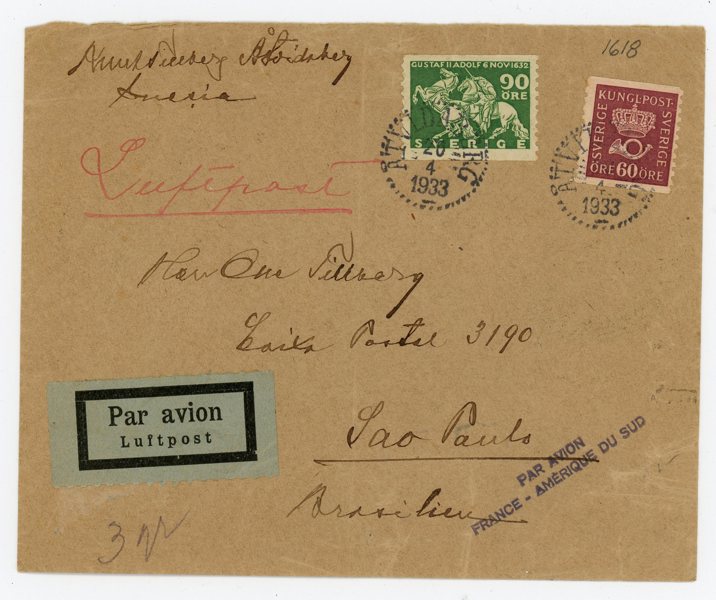 1618
Åtvidaberg
Suecia
GUSTAF II ADOLF 6 NOV 1632
90
ÖRE
SVERIGE
KUNGL. POST.
SVERIGE
SVERIGE
ÖRE 60 ÖRE
20
4
1933
4
1933
Luftpost
Herr One Tillberg
Caixa Postal 3190
Par avion
Luftpost
Sao Paulo
PAR AVION
FRANCE - AMÉRIQUE DU SUD
Brasilien
3